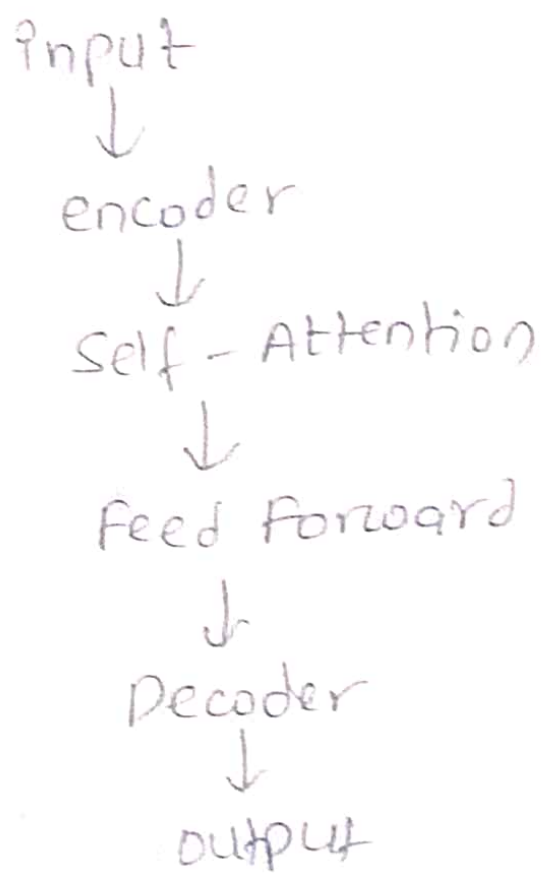 input
↓
encoder
↓
Self - Attention
↓
Feed Forward
↓
Decoder
↓
output